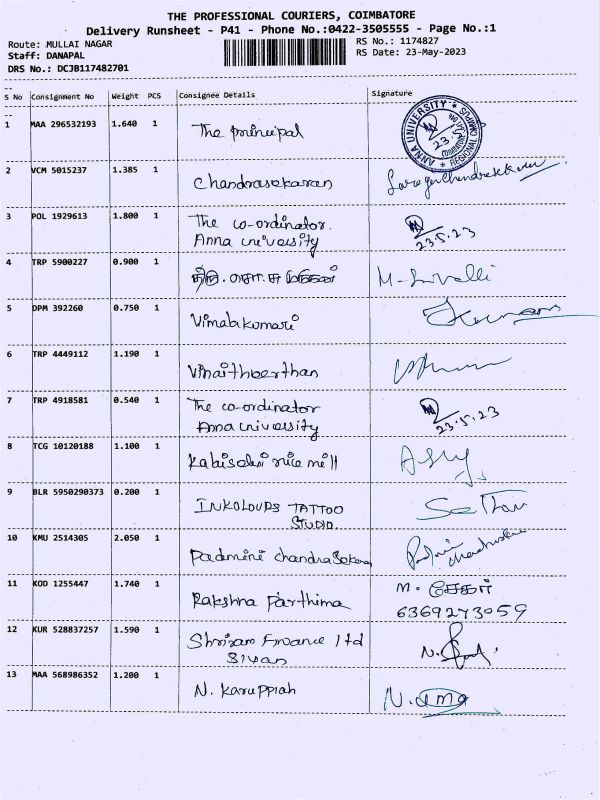 THE PROFESSIONAL COURIERS, COIMBATORE
Delivery Runsheet - P41 - Phone No.:0422-3505555 - Page No.:1
Route: MULLAI NAGAR RS No.: 1174827
Staff: DANAPAL RS Date: 23-May-2023
DRS No.: DCJB117482701
S No Consignment No Weight PCS Consignee Details Signature
1 MAA 296532193 1.640 1 The principal
ANNA UNIVERSITY REGIONAL CAMPUS COIMBATORE
23.5.
2 VCM 5015237 1.385 1 Chandrasekaran
3 POL 1929613 1.800 1 The co-ordinator.
Anna university 23.5.23
4 TRP 5900227 0.900 1
5 DPM 392260 0.750 1 Vimalakumari
6 TRP 4449112 1.190 1
7 TRP 4918581 0.540 1 The co-ordinator
Anna university 23.5.23
8 TCG 10120188 1.100 1 rice mill
9 BLR 5950290373 0.200 1 INKOLOUPS TATTOO
STUDIO.
10 KMU 2514305 2.050 1 Padmini chandrasekaran
11 KOD 1255447 1.740 1 Rakshna Parthima M. சேகர்
6369273059
12 KUR 528837257 1.590 1 Shriram Finance ltd
Sivan
13 MAA 568986352 1.200 1 N. Karuppiah N. uma